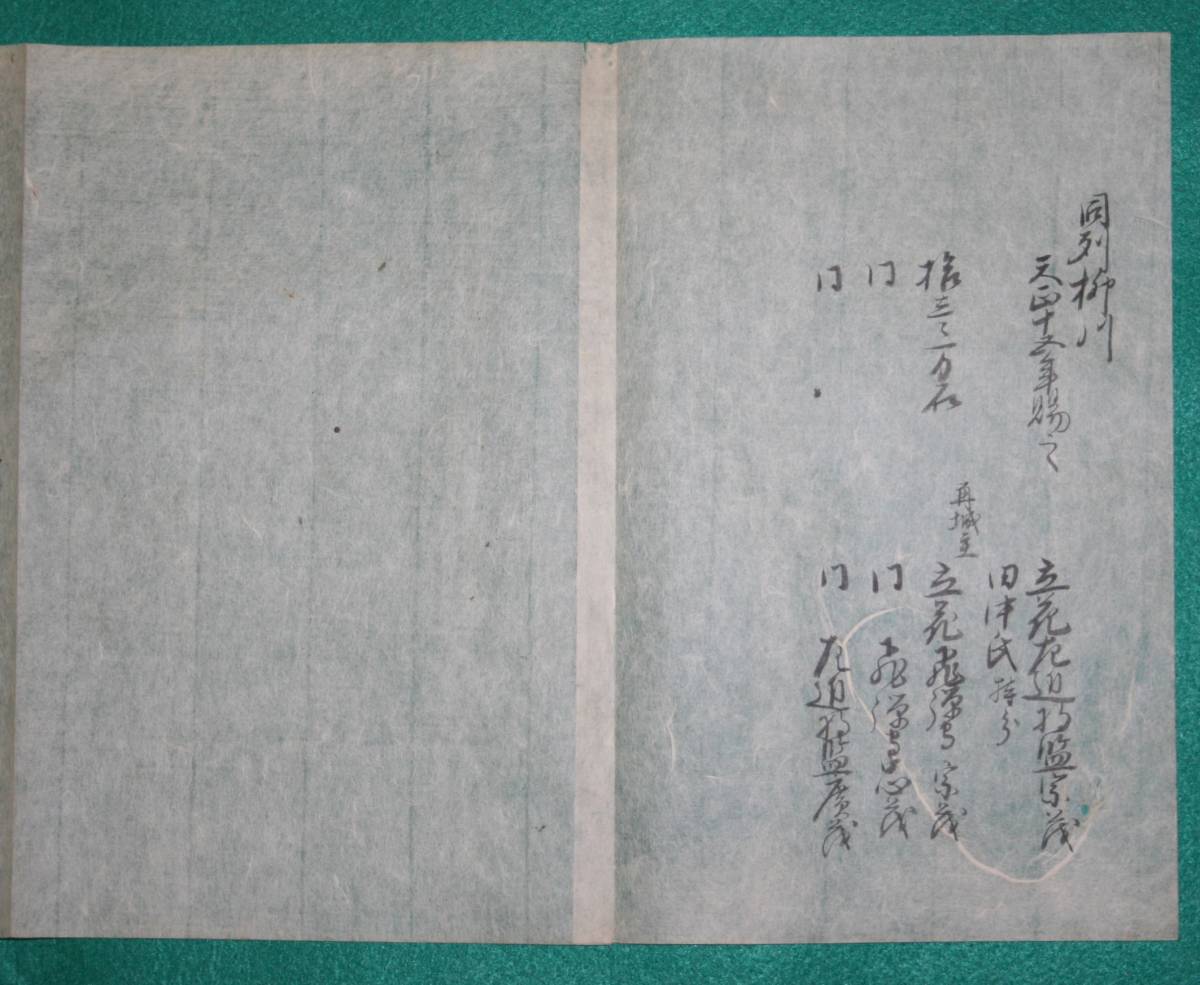 同列柳川
天正十五年賜之
立花左近将監宗茂
田中氏 持分
再城主
拾三二万石
立花飛弾守宗茂
同
同 飛弾守忠茂
同
同 左近将監広茂